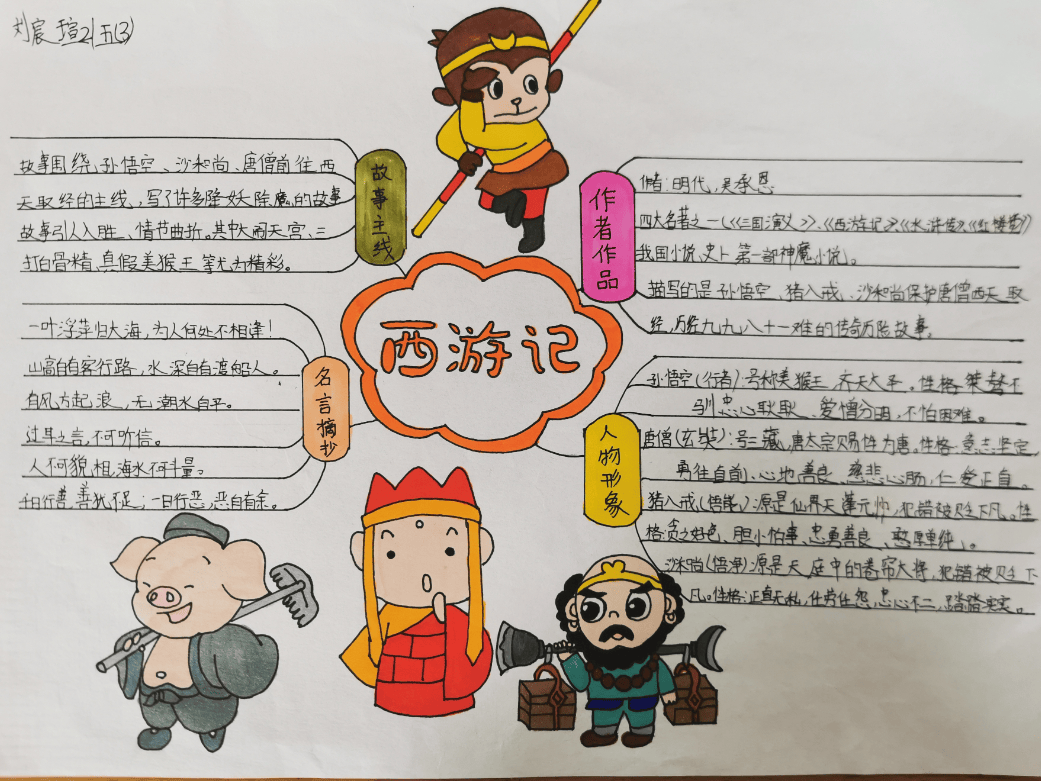 刘宸瑄 21 五(3)
西游记
故事主线
故事围绕孙悟空、沙和尚、唐僧前往西
天取经的主线,写了许多降妖除魔的故事
故事引人入胜、情节曲折。其中大闹天宫、三
打白骨精、真假美猴王等尤为精彩。
名言摘抄
一叶浮萍归大海,为人何处不相逢!
山高自有客行路,水深自有渡船人。
有风方起浪,无潮水自平。
过耳之言,不可听信。
人不可貌相,海水不可斗量。
千日行善,善犹不足;一日行恶,恶自有余。
作者作品
作者:明代,吴承恩
四大名著之一(《三国演义》、《西游记》《水浒传》《红楼梦》)
我国小说史上第一部神魔小说。
描写的是孙悟空、猪八戒、沙和尚保护唐僧西天取
经,历经九九八十一难的传奇历险故事。
人物形象
孙悟空(行者):号称美猴王、齐天大圣。性格:桀骜不
驯、忠心耿耿、爱憎分明,不怕困难。
唐僧(玄奘):号三藏,唐太宗赐姓为唐。性格:意志坚定
勇往直前、心地善良、慈悲心肠,仁爱正直。
猪八戒(悟能):原是仙界天蓬元帅,犯错被贬下凡。性
格:贪吃好色、胆小怕事、忠勇善良、憨厚单纯。
沙和尚(悟净)原是天庭中的卷帘大将,犯错被贬下
凡。性格:正直无私,任劳任怨,忠心不二,踏踏实实。